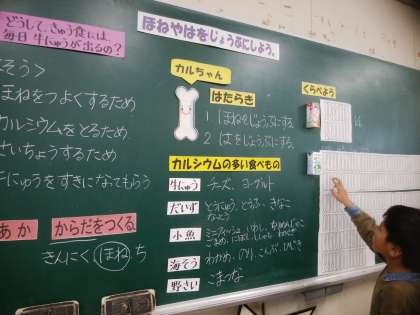 どうして、きゅう食には、
毎日 牛にゅうが出るの？
ほねやはをじょうぶにしよう。
そう＞
ほねをつよくするため
カルシウムをとるため
せいちょうするため
にゅうをすきになってもらう
あか からだをつくる
きんにく ほね ち
カルちゃん
はたらき
1 ほねをじょうぶにする
2 はをじょうぶにする
カルシウムの多い食べもの
牛にゅう チーズ、ヨーグルト
だいず とうにゅう、とうふ、きなこ
なっとう
小魚
海そう わかめ、のり、こんぶ、ひじき
野さい こまつな
くらべよう